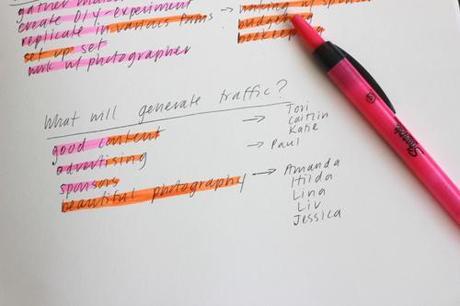 create DIY-experiment
replicate in various rooms →
budgeting
set up set
bookkeeping
work w/ photographer
What will generate traffic?
good content → Tori
Caitlin
Katie
advertising → Paul
sponsors
beautiful photography → Amanda
Hilda
Lina
Liv
Jessica
Sharpie